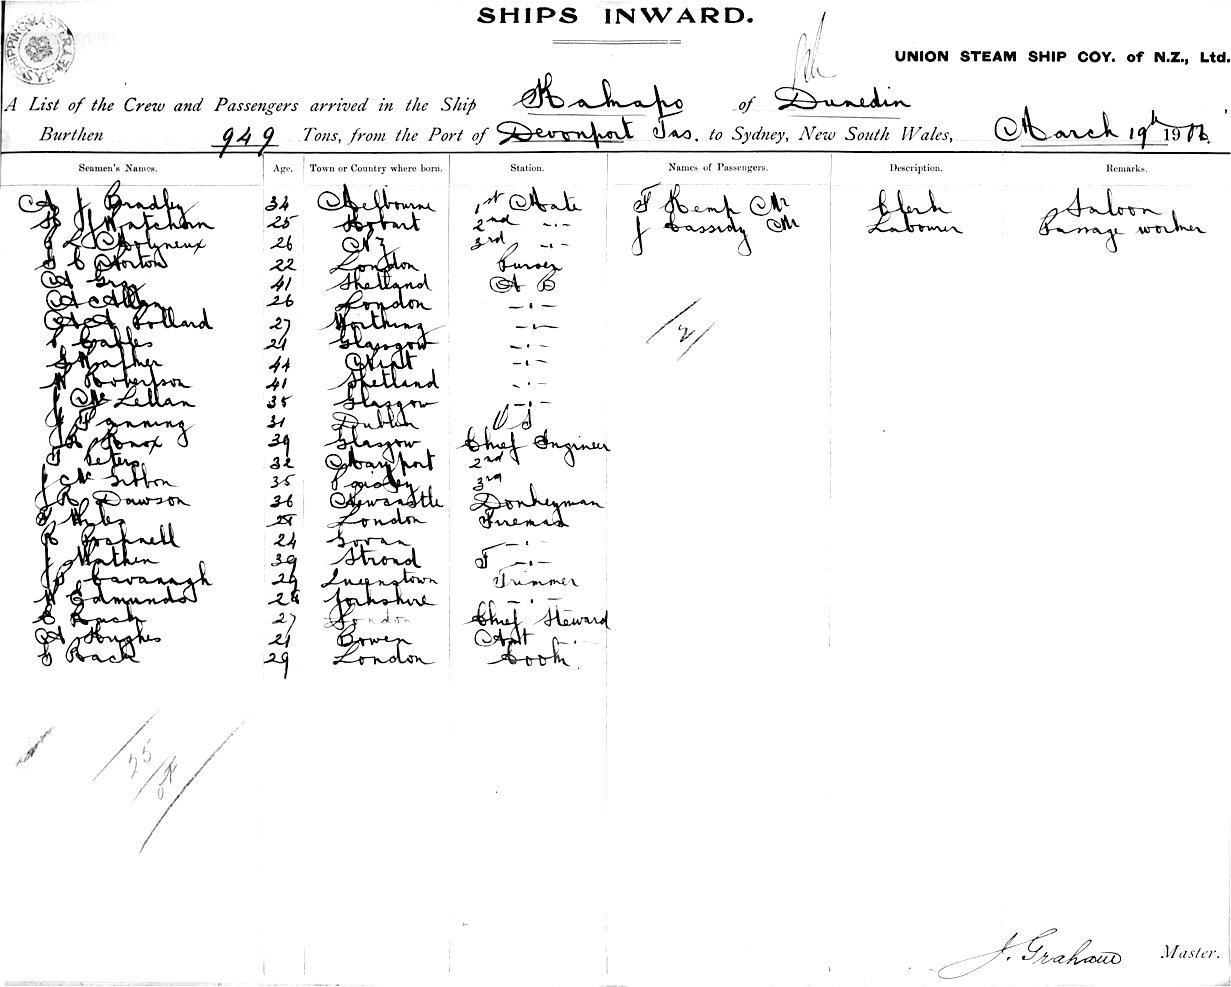 SHIPS INWARD.
UNION STEAM SHIP COY. of N.Z., Ltd.
A List of the Crew and Passengers arrived in the Ship Kakapo of Dunedin
Burthen 949 Tons, from the Port of Devonport Tas. to Sydney, New South Wales, March 19th 1906.
Seamen's Names. Age. Town or Country where born. Station. Names of Passengers. Description. Remarks.
A J Bradley 34 Melbourne 1st Mate F Kemp Mr Clerk Saloon
H J Hutcheon 25 Hobart 2nd -..- J Cassidy Mr Labourer Passage worker
J L Molyneux 26 NZ 3rd -..-
C Norton 22 London Purser
A Gray 41 Shetland A B
A McAllan 26 London -..-
A A Pollard 27 Worthing -..-
Cables 21 Glasgow -..-
44 -..-
W Robertson 41 Shetland -..-
J Mc Lellan 35 Glasgow -..-
J Fanning 31 Dublin O S
Knox 39 Glasgow Chief Engineer
Peters 32 Maryport 2nd
J McGibbon 35 Paisley 3rd
J R Dawson 36 Newcastle Donkeyman
London Fireman
24 Govan -..-
J 39 Stroud F -..-
J P Cavanagh 29 Queenstown Trimmer
W Edmunds Yorkshire -..-
27 London Chief Steward
A Hughes 21 Bowen Asst -..-
Rach 29 London Cook.
2
25
J. Graham Master.